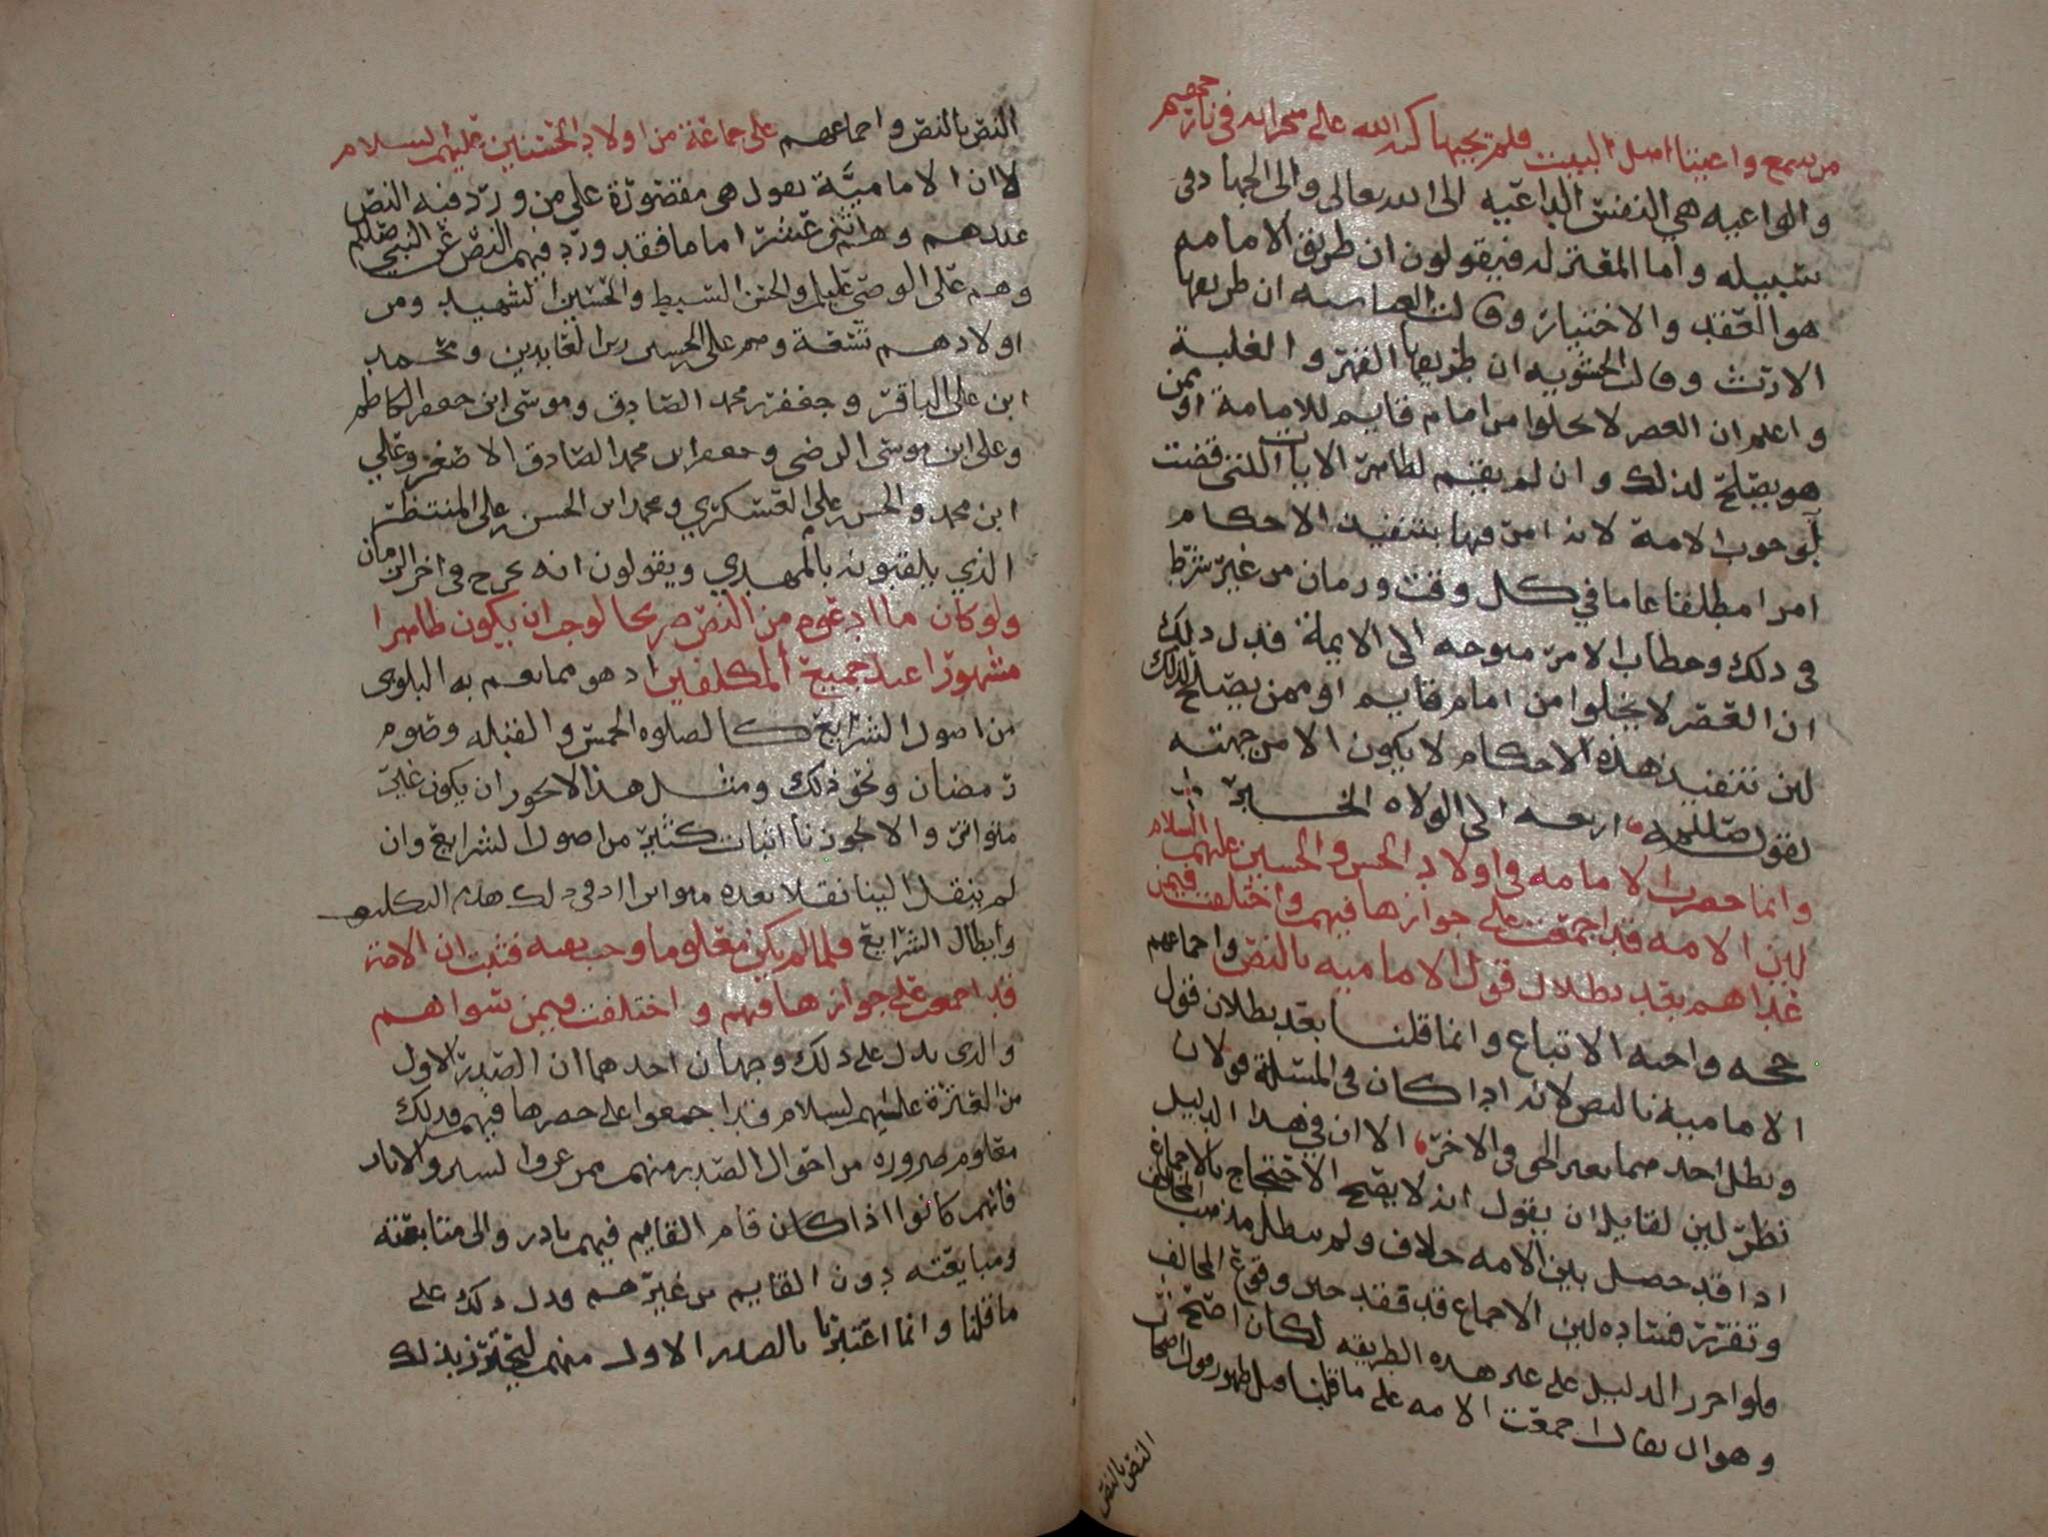 من سمع واعيتنا اهل البيت فلم يجبها كبه الله على منخراه في نار جهنم
والواعيه هي النفس الداعيه الى الله تعالى والى الجهاد في
سبيله واما المعتزله فيقولون ان طريق الامامه
هو العقد والاختيار وقالت العباسيه ان طريقها
الارث وقالت الحشويه ان طريقها القهر والغلبة
واعلم ان العصر لا يخلوا من امام قايم للامامة او من
هو يصلح لذلك وان لم يقم لظاهر الايات اللتي قضت
بوجوب الامامة لانه امر فيها بتنفيذ الاحكام
امرا مطلقا عاما في كل وقت وزمان من غير شرط
في ذلك وخطاب الامر متوجه الى الايمة فدل ذلك
ان العصر لا يخلوا من امام قايم او ممن يصلح لذلك
لين تنفيذ هذه الاحكام لا يكون الا من جهته
لقول صلعم اربعه الى الولاه الخبر
وانما حصرت الامامه في اولاد الحسن والحسين عليهم السلام
لين الامه قد اجمعت على جوازها فيهم واختلفت فيمن
عداهم بعد بطلان قول الاماميه بالنص واجماعهم
حجه واجبه الاتباع وانما قلنا بعد بطلان قول
الاماميه بالنص لانه اذا كان في المسئلة قولان
وبطل احدهما تعين الحق في الاخر الا ان في هذا الدليل
نظر لين لقايل ان يقول انه لا يصح الاحتجاج بالاجماع
اذا قد حصل بين الامه خلاف ولم يبطل مذهب المخالف
وتقرر فساده لين الاجماع قد فقد حين وقوع المخالف
ولو احرر الدليل على غير هذه الطريقه لكان اصح
وهو ان يقال اجمعت الامه على ما قلنا قبل ظهور قول اصحاب
النص بالنص
النص بالنص واجماعهم على جماعة من اولاد الحسنين عليهم السلام
لا ان الاماميَّة يقول هي مقصورة على من ورد فيه النص
عندهم وهم اثني عشر اماما فقد ورد فيهم النص عن النبي صلعم
وهم علي الوصي عليلم والحسن السبط والحسين الشهيد ومن
اولادهم تسعة وهم علي الحسين زين العابدين ومحمد
ابن علي الباقر وجعفر بن محمد الصادق وموسى ابن جعفر الكاظم
وعلي ابن موسى الرضى وجعفر ابن محمد الصادق الاصغر وعلي
ابن محمد والحسن بن علي العسكري ومحمد ابن الحسن بن علي المنتظر
الذي يلقبونه بالمهدي ويقولون انه يخرج في اخر الزمان
ولو كان ما ادعوه من النص صريحا لوجب ان يكون ظاهرا
مشهورا عند جميع المكلفين اذ هو مما يعم به البلوى
من اصول الشرايع كالصلوه الخمس والقبله وصوم
رمضان ونحو ذلك ومثل هذا لا يجوز ان يكون غير
متواتر والا لجوزنا اثبات كثير من اصول الشرايع وان
لم ينقل الينا نقلا بعده متواترا اذ في ذلك هدم التكليف
وابطال الشرايع فلما لم يكن معلوما وجب نفيه فثبت ان الامة
قد اجمعت على جوازها فيهم واختلفت فيمن سواهم
والذي يدل على ذلك وجهان احدهما ان الصدر الاول
من العترة عليهم السلام قد اجمعوا على حصرها فيهم وذلك
معلوم ضرورة من احوال الصدر منهم ممن عرف السير والاثار
فانهم كانوا اذا كان قام القايم فيهم بادروا الى متابعته
ومبايعته دون القايم من غيرهم فدل ذلك على
ما قلنا وانما اعتبرنا بالصدر الاول منهم ليحترز بذلك